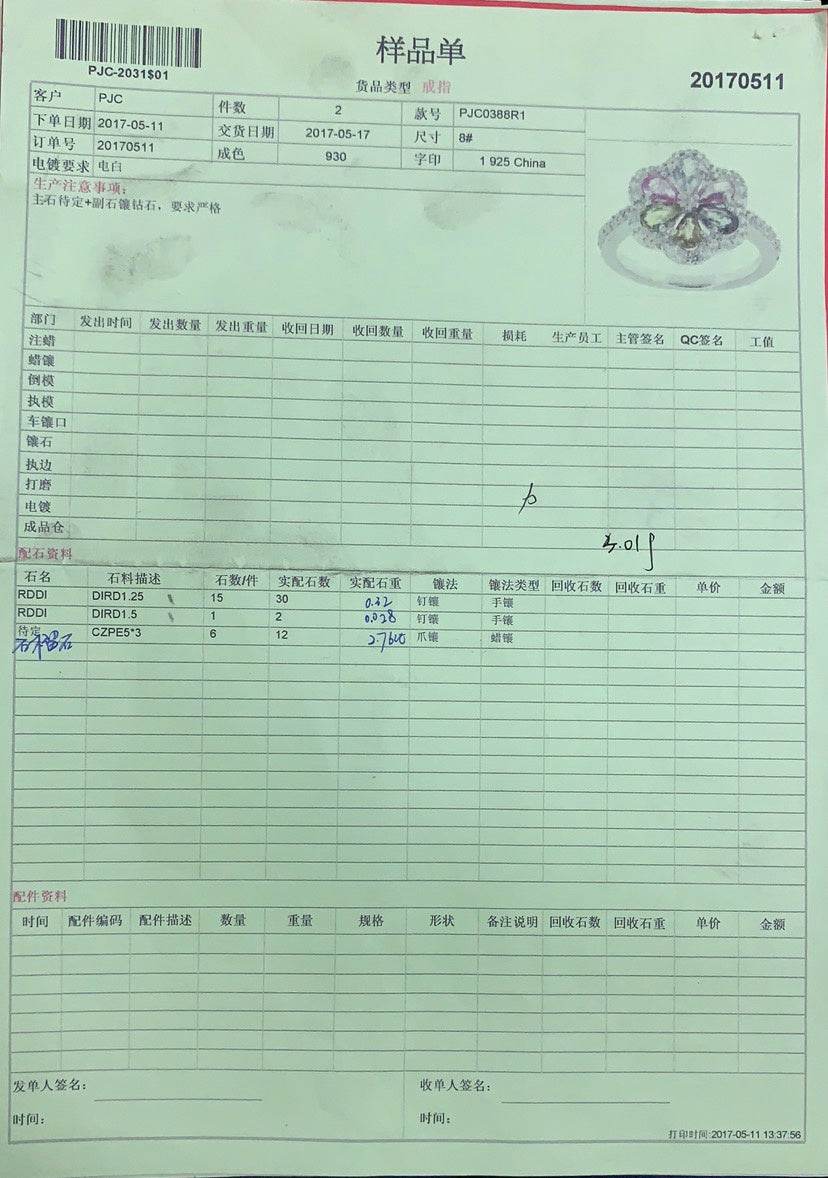 样品单
PJC-2031$01
货品类型 戒指
20170511
客户 PJC 件数 2 款号 PJC0388R1
下单日期 2017-05-11 交货日期 2017-05-17 尺寸 8#
订单号 20170511 成色 930 字印 1 925 China
电镀要求 电白
生产注意事项:
主石待定+副石镶钻石，要求严格
部门 发出时间 发出数量 发出重量 收回日期 收回数量 收回重量 损耗 生产员工 主管签名 QC签名 工值
注蜡
蜡镶
倒模
执模
车镶口
镶石
执边
打磨
电镀
成品仓
配石资料
石名 石料描述 石数/件 实配石数 实配石重 镶法 镶法类型 回收石数 回收石重 单价 金额
RDDI DIRD1.25 15 30 0.32 钉镶 手镶
RDDI DIRD1.5 1 2 0.028 钉镶 手镶
待定 CZPE5*3 6 12 爪镶 蜡镶
配件资料
时间 配件编码 配件描述 数量 重量 规格 形状 备注说明 回收石数 回收石重 单价 金额
发单人签名: 收单人签名:
时间: 时间:
打印时间:2017-05-11 13:37:56